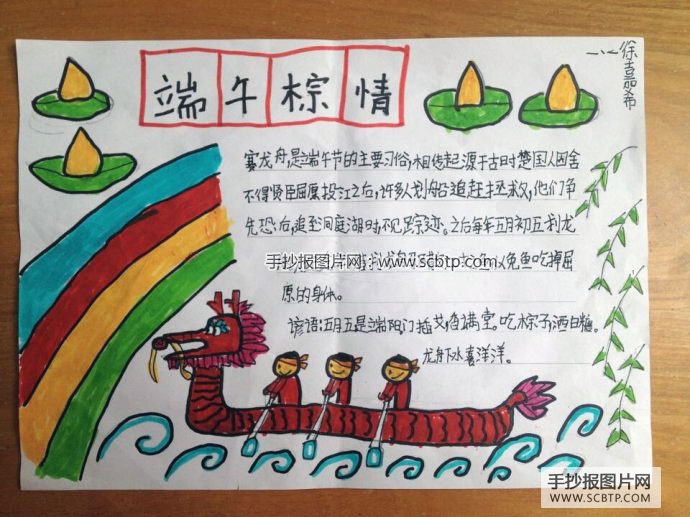 端午棕情
一·一徐嘉希
赛龙舟,是端午节的主要习俗,相传起源于古时楚国人因舍
不得贤臣屈原投江之后,许多人划船追赶拯救,他们争
先恐后,追至洞庭湖时不见踪迹。之后每年五月初五划龙
手抄报图片网:www.scbtp.com
以免鱼吃掉屈
原的身体。
谚语:五月五是端阳,门插艾香满堂。吃棕子洒白糖。
龙舟下水喜洋洋。
手抄报图片网
WWW.SCBTP.COM